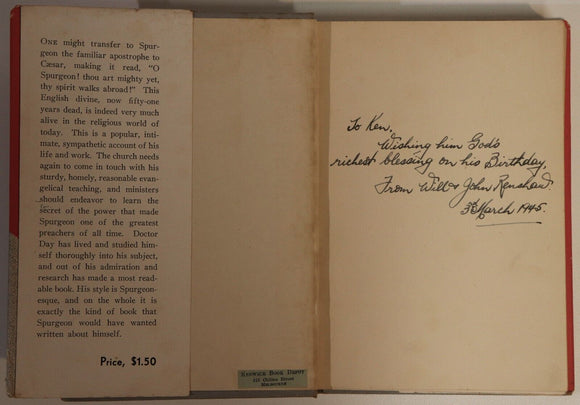 ONE might transfer to Spur-
geon the familiar apostrophe to
Cæsar, making it read, "O
Spurgeon! thou art mighty yet,
thy spirit walks abroad!" This
English divine, now fifty-one
years dead, is indeed very much
alive in the religious world of
today. This is a popular, inti-
mate, sympathetic account of his
life and work. The church needs
again to come in touch with his
sturdy, homely, reasonable evan-
gelical teaching, and ministers
should endeavor to learn the
secret of the power that made
Spurgeon one of the greatest
preachers of all time. Doctor
Day has lived and studied him-
self thoroughly into his subject,
and out of his admiration and
research has made a most read-
able book. His style is Spurgeon-
esque, and on the whole it is
exactly the kind of book that
Spurgeon would have wanted
written about himself.
Price, $1.50
KESWICK BOOK DEPOT
315 Collins Street
MELBOURNE
To Ken,
Wishing him God's
richest blessing on his Birthday,
From Will & John Renshaw.
3rd March 1945.